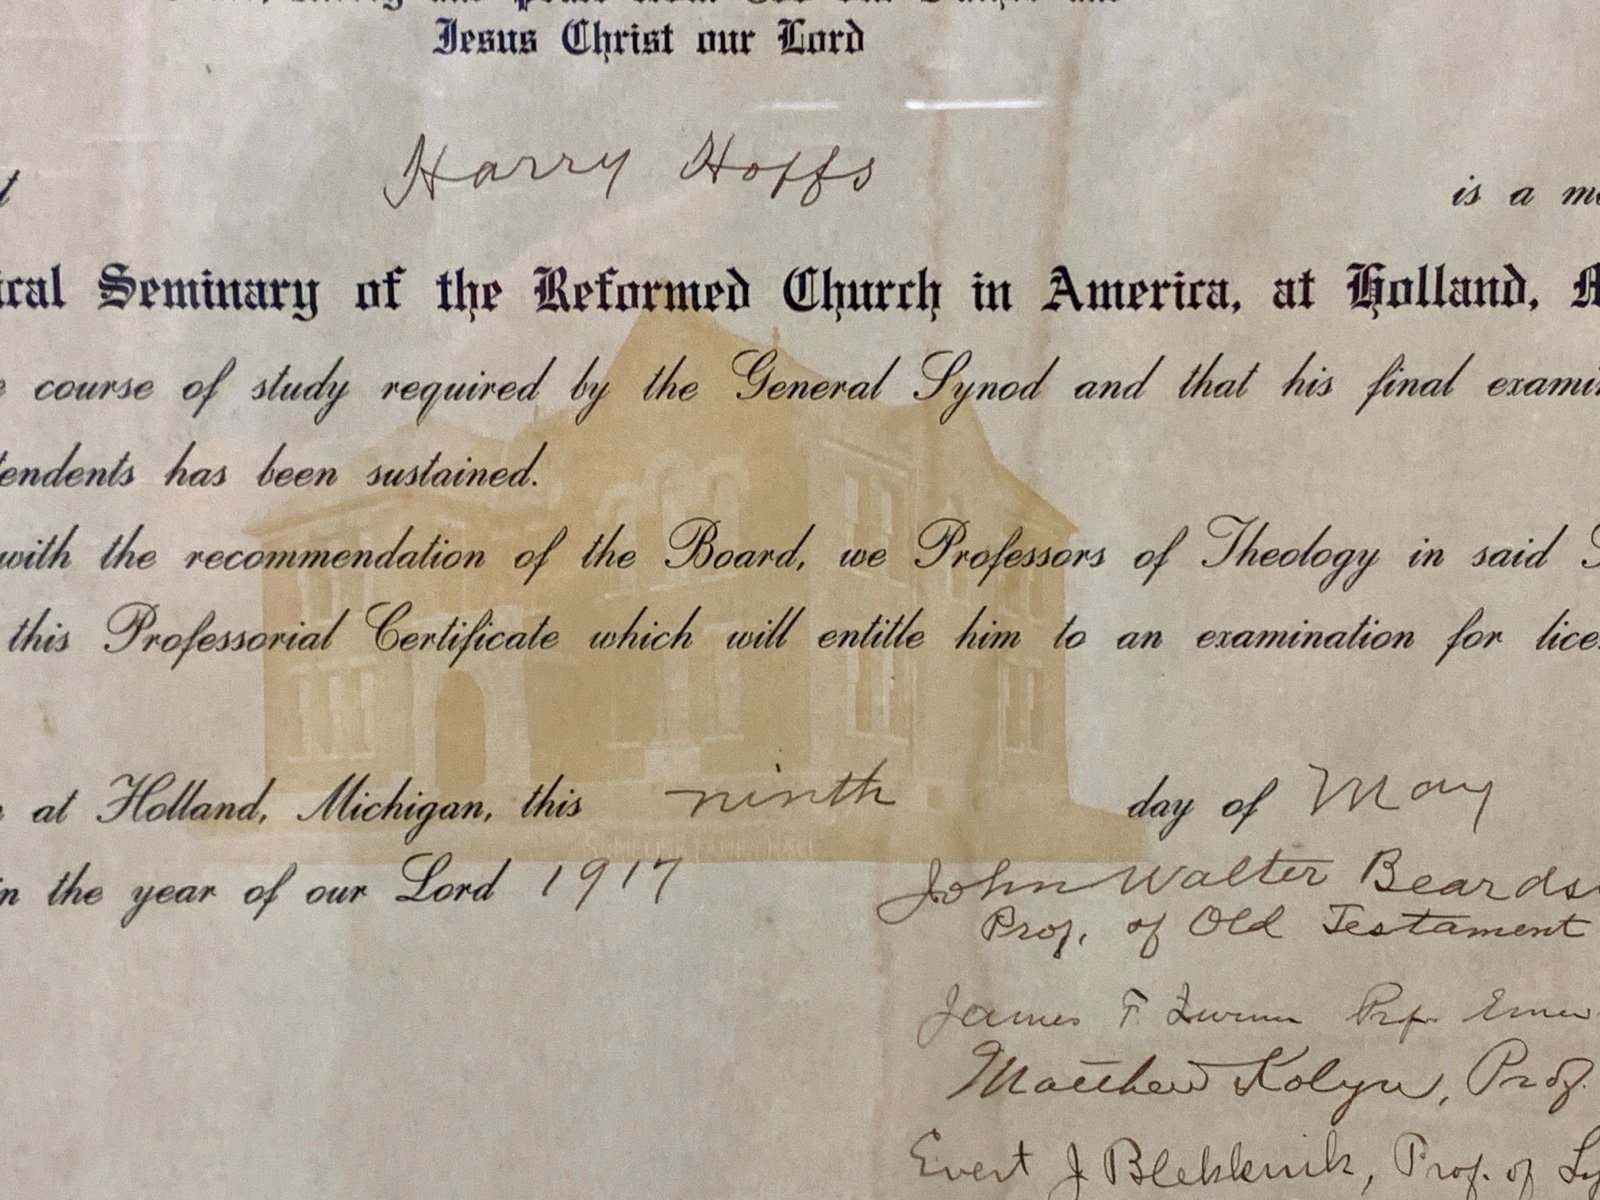 Jesus Christ our Lord
Harry Hoffs
is a
ical Seminary of the Reformed Church in America, at Holland, M
course of study required by the General Synod and that his final exami
tendents has been sustained.
with the recommendation of the Board, we Professors of Theology in said
this Professorial Certificate which will entitle him to an examination for lice
at Holland, Michigan, this ninth day of May
in the year of our Lord 1917
John Walter Beards
Prof. of Old Testament
James F. Zwemer Prof. Emer
Matthew Kolyn, Prof.
Evert J Blekkink, Prof. of Sy